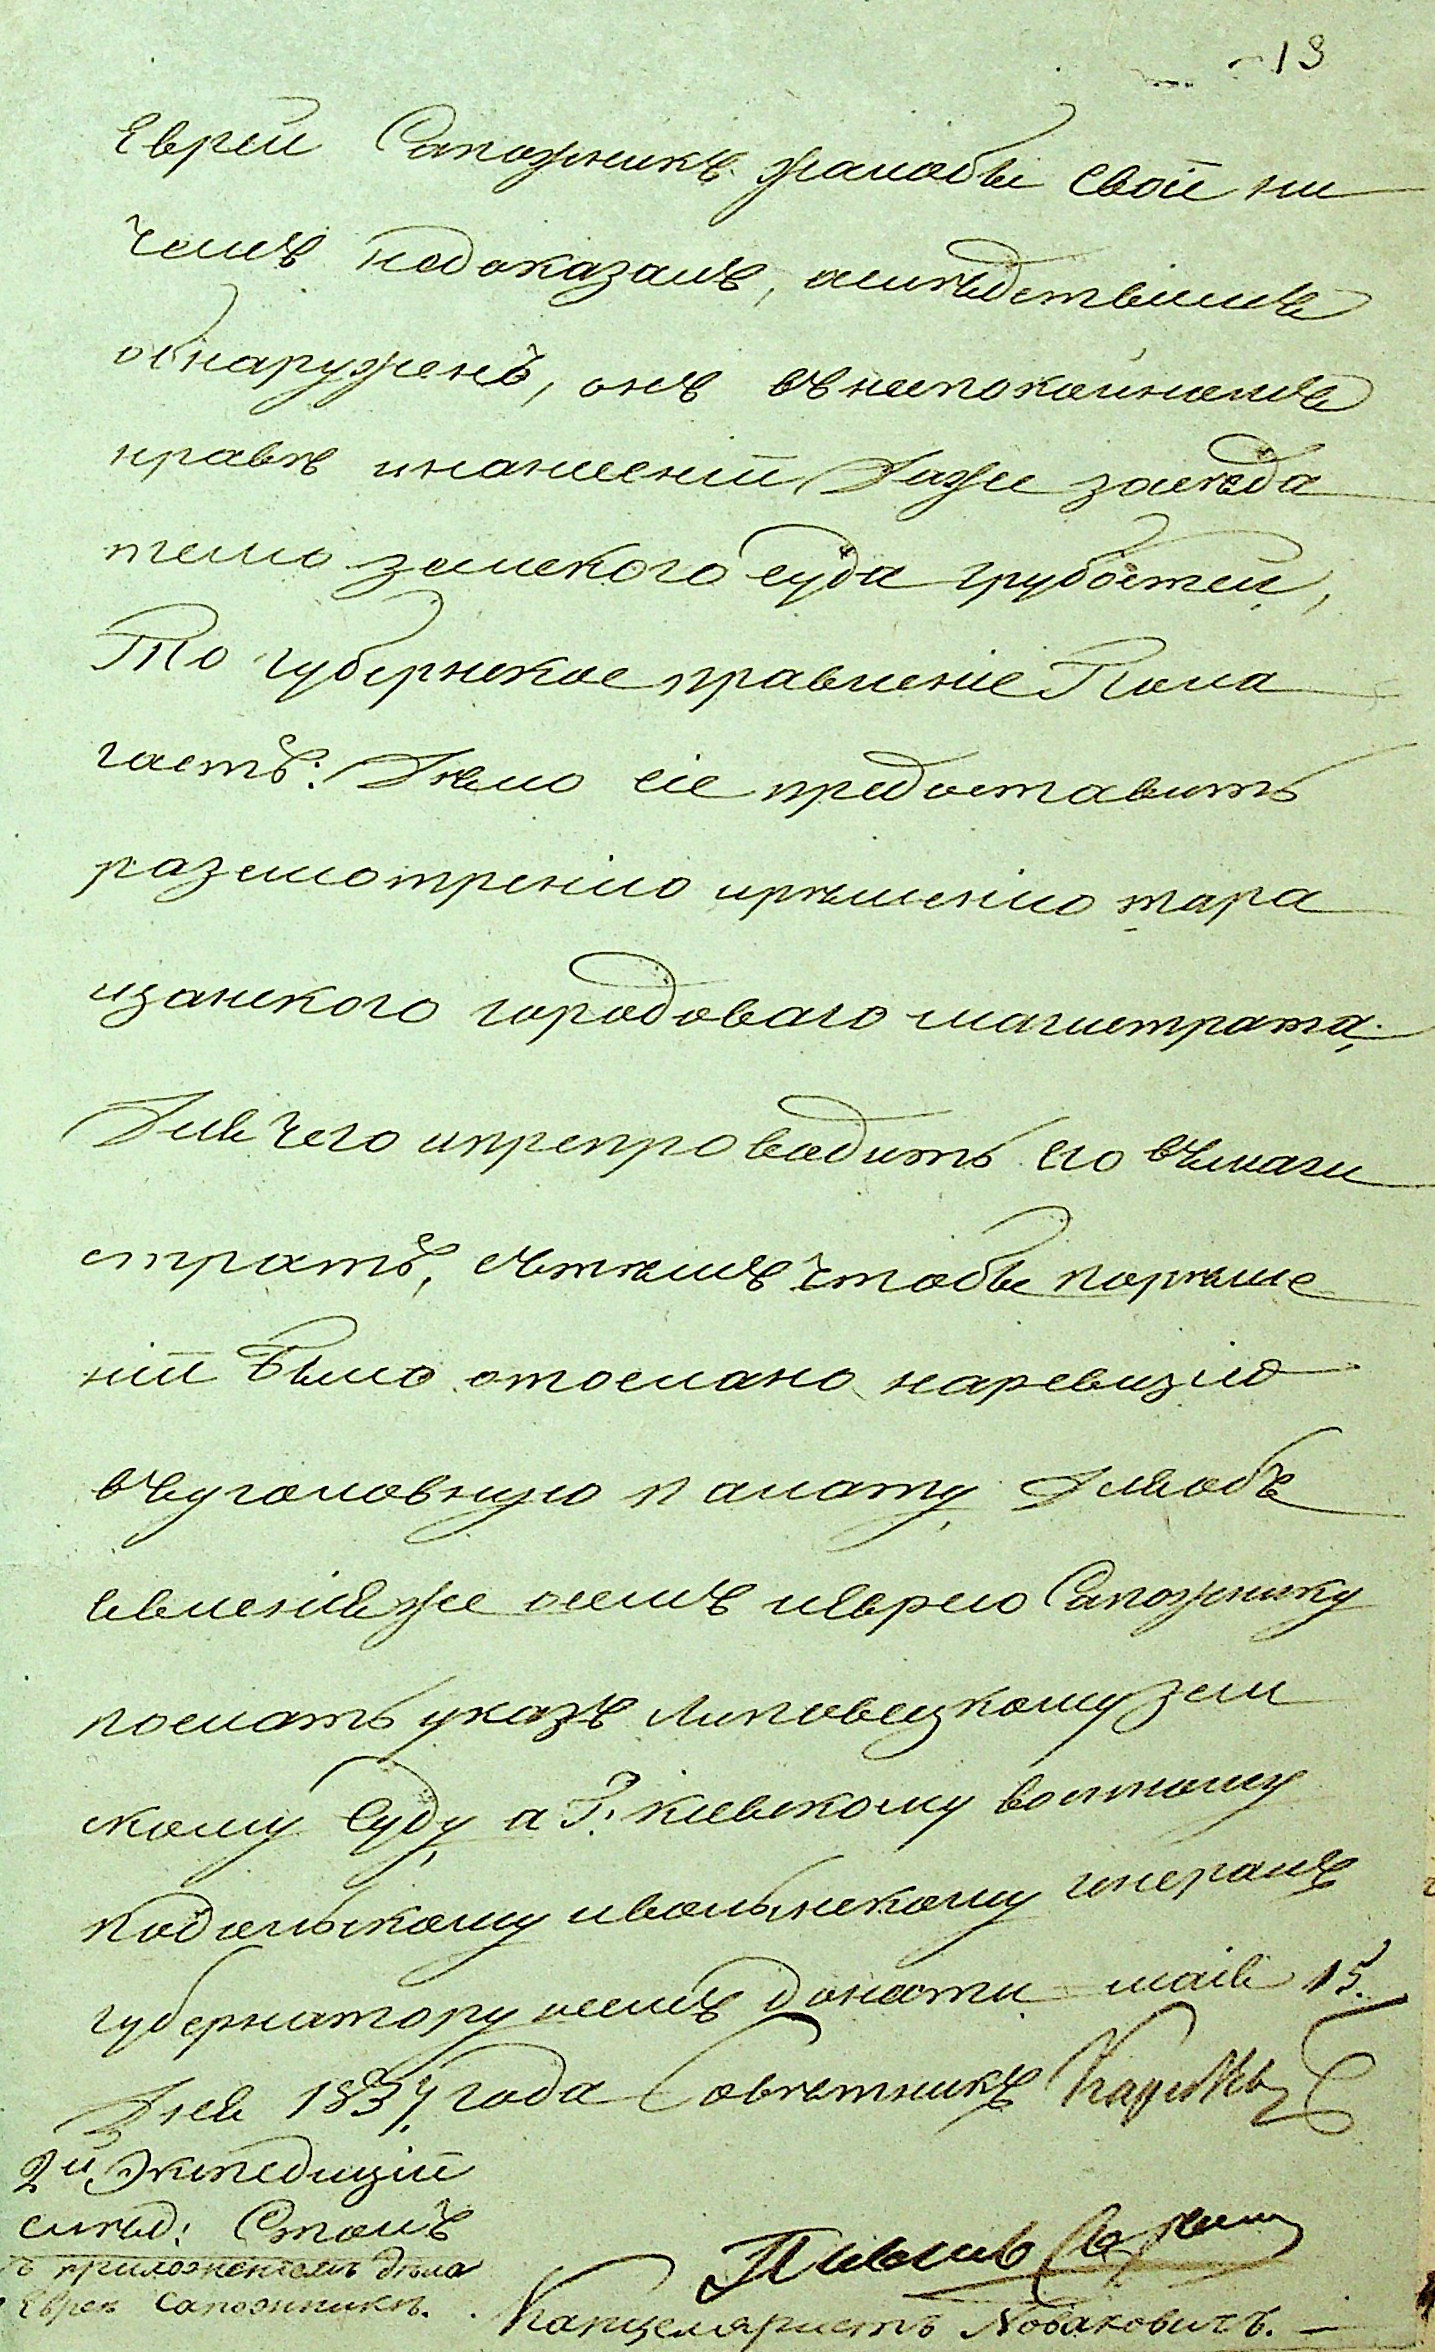 19
Еврей Сапожникъ жалобы своей ни
чемъ недоказалъ, аслѣдствіемъ
обнаруженъ, онъ въ неспокойномъ
нравѣ инанесеніи даже засѣда
телю земского суда грубостей,
То губернское правленіе Пола
гаетъ: Дѣло сіе предоставить
разсмотренію ирѣшенію тара
щанского городоваго магистрата;
Для чего ипрепроводить его въ маги
стратъ, сътѣмъ чтобы порѣше
ніи было отослано наревизію
въ уголовную палату, Для объ
явленія же осемъ иеврею Сапожнику
послать указъ Липовецкому зем
скому Суду, а Г. кіевскому военному
Подольскому иволынскому генералъ
губернатору осемъ донести маія 15.
Дня 1834 года Совѣтникъ
2й Экспедиціи
слѣд: Столъ
съ приложеніемъ дѣла
Еврея Сапожника.
Канцеляристъ Новаковичъ.